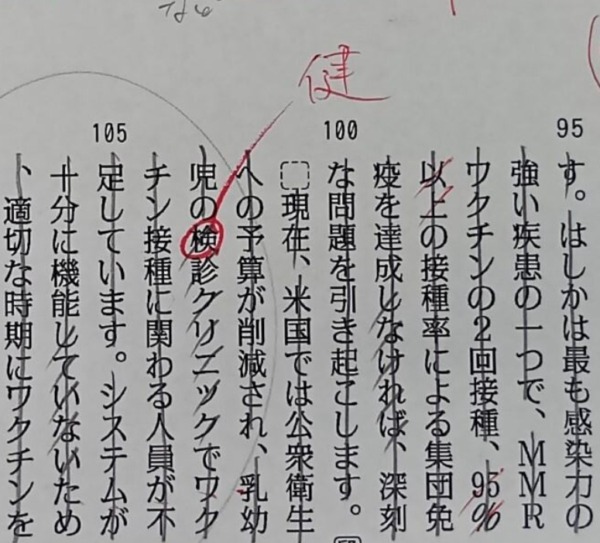 健
95
す。はしかは最も感染力の
強い疾患の一つで、MMR
ワクチンの2回接種、95%
以上の接種率による集団免
疫を達成しなければ、深刻
100
な問題を引き起こします。
現在、米国では公衆衛生
への予算が削減され、乳幼
児の検診クリニックでワク
チン接種に関わる人員が不
105
足しています。システムが
十分に機能していないため
、適切な時期にワクチンを